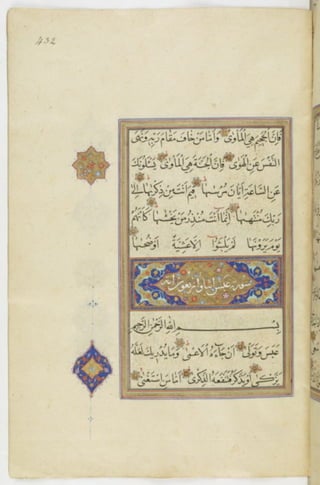 432
فَإِنَّ الْجَحِيمَ هِيَ الْمَأْوَى وَأَمَّا مَنْ خَافَ مَقَامَ رَبِّهِ وَنَهَى
النَّفْسَ عَنِ الْهَوَى فَإِنَّ الْجَنَّةَ هِيَ الْمَأْوَى يَسْأَلُونَكَ
عَنِ السَّاعَةِ أَيَّانَ مُرْسَيهَا فِيمَ أَنْتَ مِنْ ذِكْرَيهَا إِلَى
رَبِّكَ مُنْتَهَيهَا إِنَّمَا أَنْتَ مُنْذِرُ مَنْ يَخْشَيهَا كَأَنَّهُمْ
يَوْمَ يَرَوْنَهَا لَمْ يَلْبَثُوا إِلَّا عَشِيَّةً أَوْ ضُحَيهَا
سورة عبس اثنان واربعون اية
بِسْمِ اللَّهِ الرَّحْمَنِ الرَّحِيمِ
عَبَسَ وَتَوَلَّى أَنْ جَاءَهُ الْأَعْمَى وَمَا يُدْرِيكَ لَعَلَّهُ
يَزَّكَّى أَوْ يَذَّكَّرُ فَتَنْفَعَهُ الذِّكْرَى أَمَّا مَنِ اسْتَغْنَى